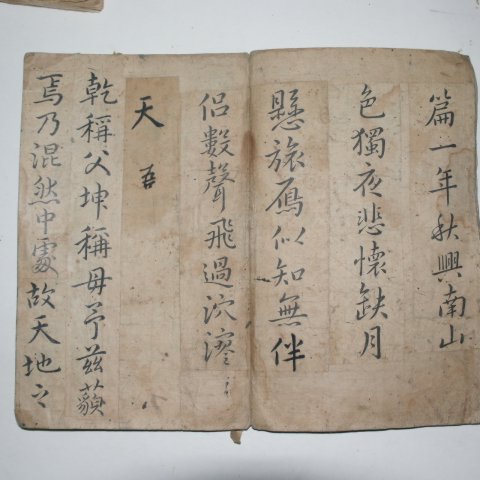 篇一年秋興南山
色獨夜悲懷缺月
懸旅鴈似知無伴
侶數聲飛過泬漻
天 吾
乾稱父坤稱母予玆藐
焉乃混然中處故天地之